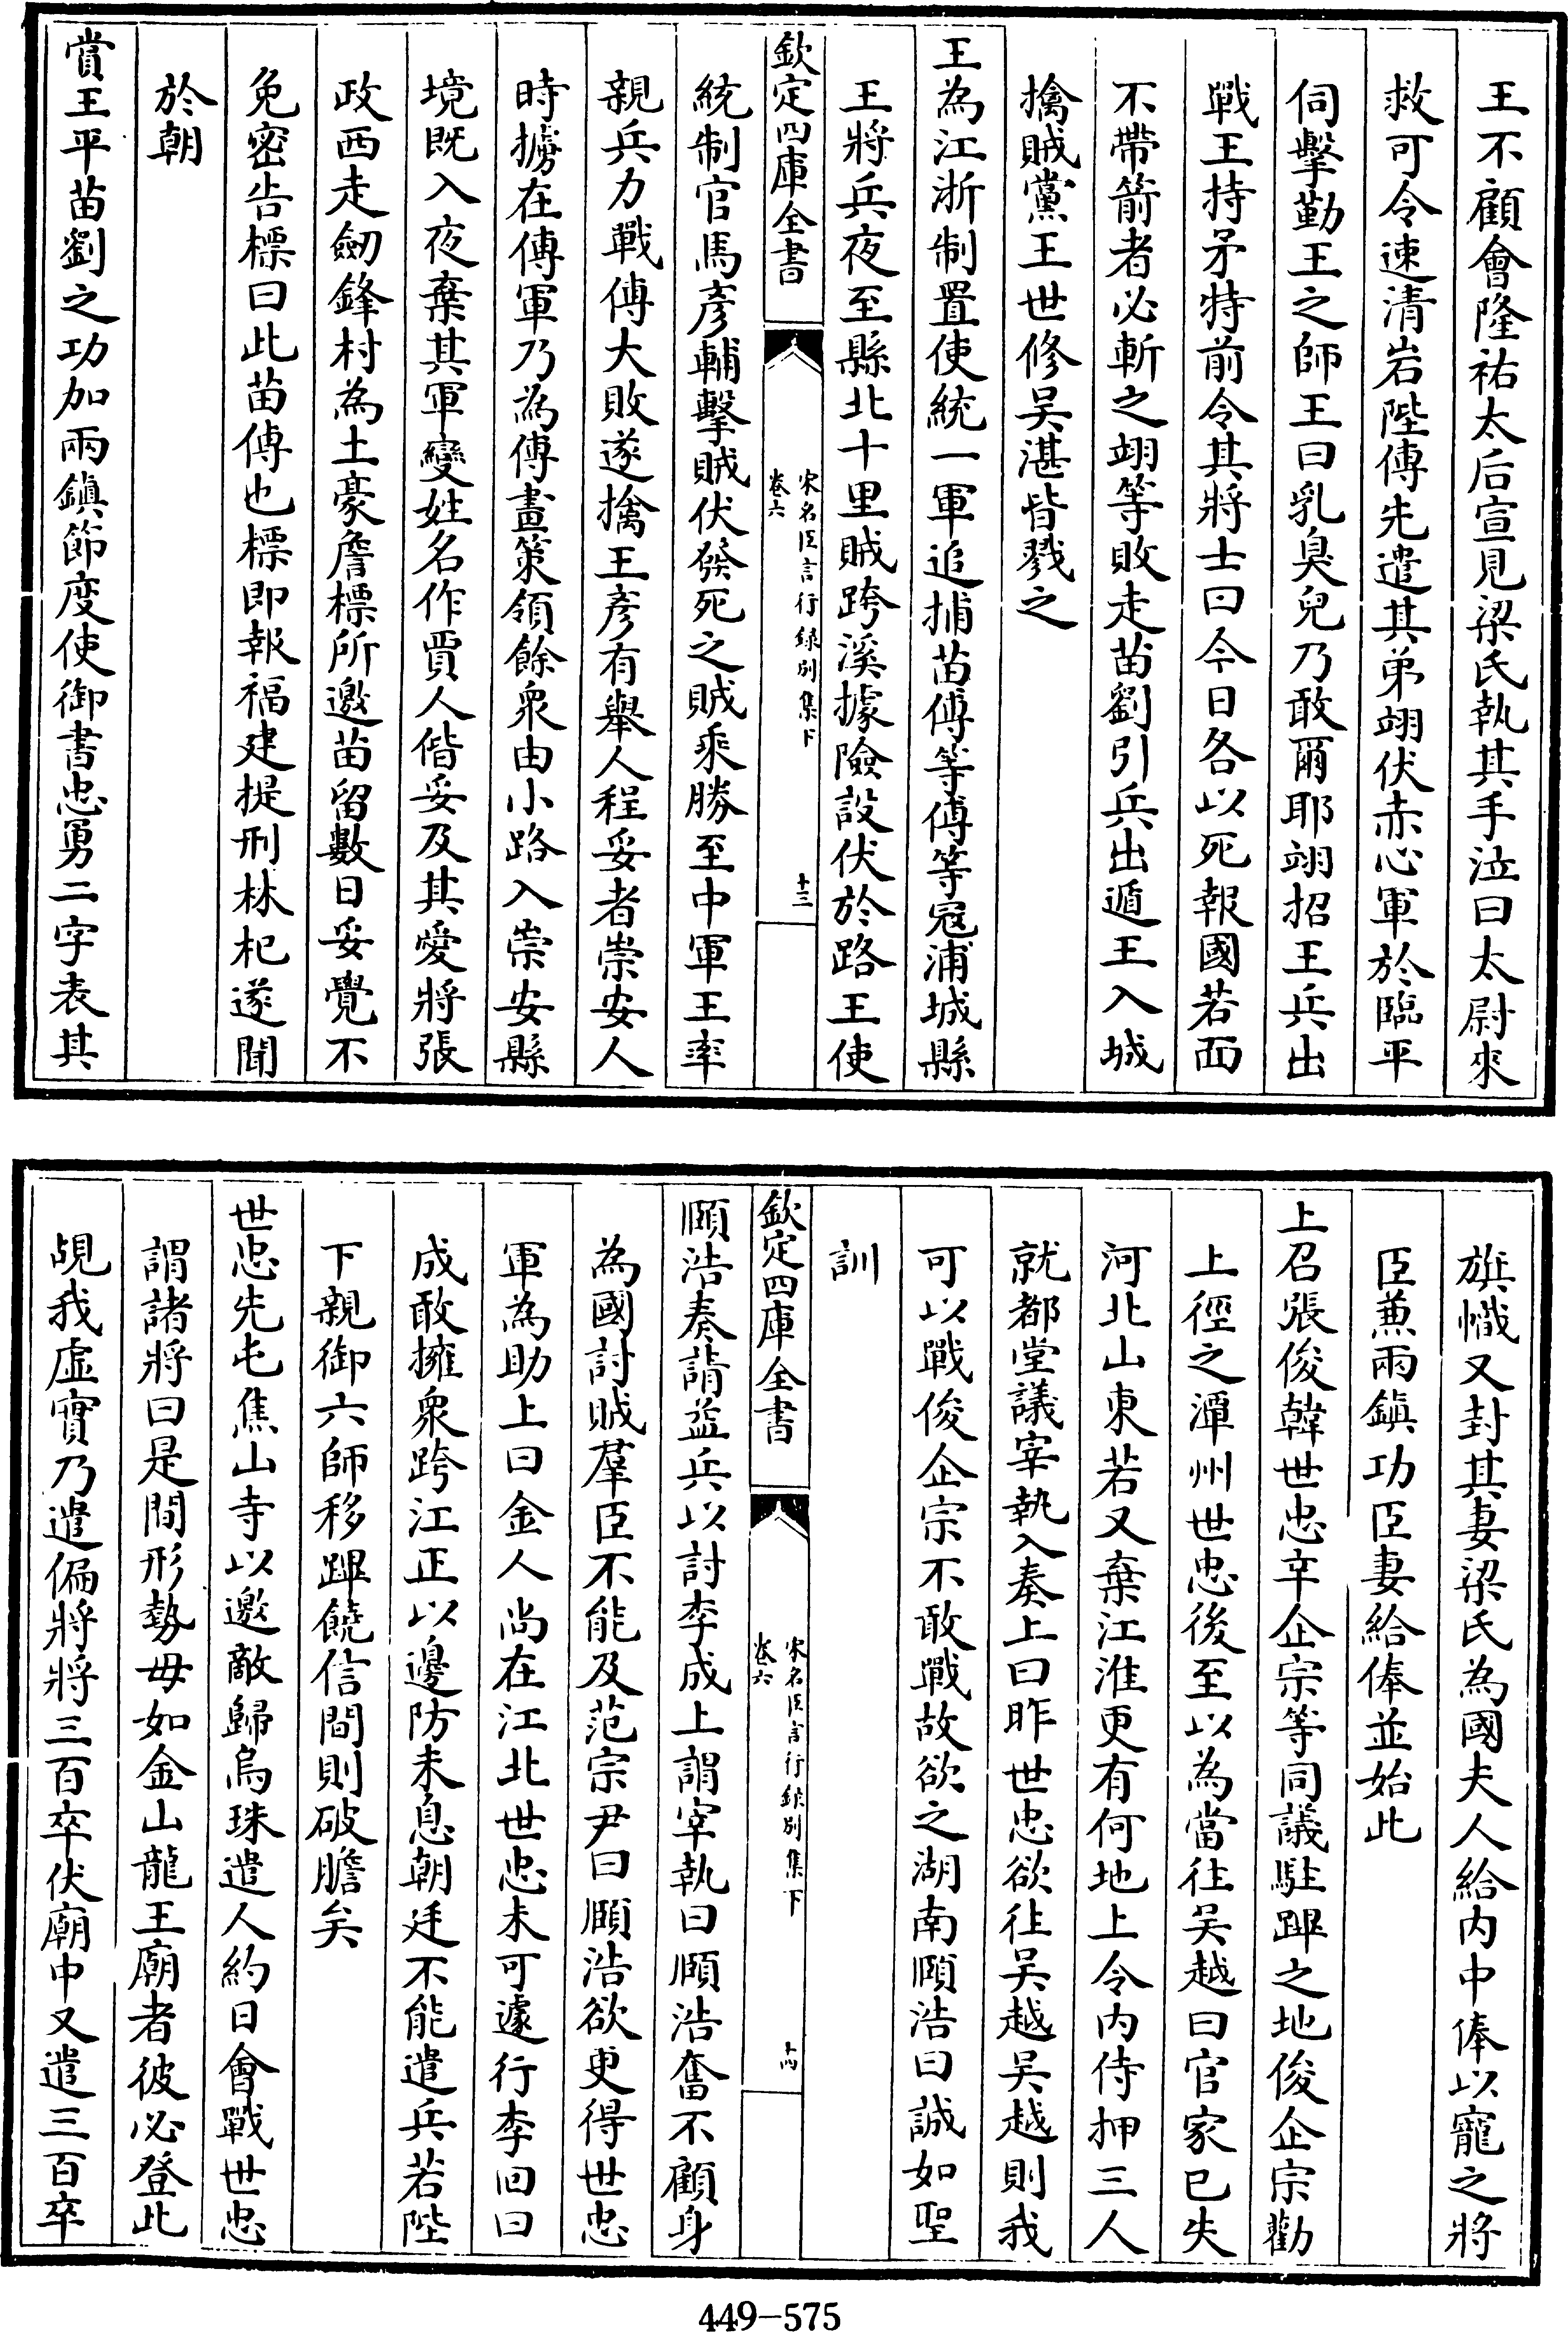 王不顧會隆祐太后宣見梁氏執其手泣曰太尉來
救可令速清岩陛傅先遣其弟翊伏赤心軍於臨平
伺擊勤王之師王曰乳臭兒乃敢爾耶翊招王兵出
戰王持矛特前令其將士曰今日各以死報國若面
不帶箭者必斬之翊等敗走苗劉引兵出遁王入城
擒賊黨王世修吳湛皆戮之
王為江浙制置使統一軍追捕苗傅等傅等寇浦城縣
王將兵夜至縣北十里賊跨溪據險設伏於路王使
欽定四庫全書
宋名臣言行錄別集下
卷六
十三
統制官馬彥輔擊賊伏發死之賊乘勝至中軍王率
親兵力戰傅大敗遂擒王彥有舉人程妥者崇安人
時擄在傅軍乃為傅畫策領餘衆由小路入崇安縣
境既入夜棄其軍變姓名作賈人偕妥及其愛將張
政西走劒鋒村為土豪詹標所邀苗留數日妥覺不
免密告標曰此苗傅也標即報福建提刑林杞遂聞
於朝
賞王平苗劉之功加兩鎮節度使御書忠勇二字表其
旗幟又封其妻梁氏為國夫人給内中俸以寵之將
臣兼兩鎮功臣妻給俸並始此
上召張俊韓世忠辛企宗等同議駐蹕之地俊企宗勸
上徑之潭州世忠後至以為當往吳越曰官家已失
河北山東若又棄江淮更有何地上令内侍押三人
就都堂議宰執入奏上曰昨世忠欲往吳越吳越則我
可以戰俊企宗不敢戰故欲之湖南頤浩曰誠如聖
訓
欽定四庫全書
宋名臣言行錄別集下
卷六
十四
頤浩奏請益兵以討李成上謂宰執曰頤浩奮不顧身
為國討賊羣臣不能及范宗尹曰頤浩欲更得世忠
軍為助上曰金人尚在江北世忠未可遽行李回曰
成敢擁衆跨江正以邊防未息朝廷不能遣兵若陛
下親御六師移蹕饒信間則破膽矣
世忠先屯焦山寺以邀敵歸烏珠遣人約日會戰世忠
謂諸將曰是間形勢毋如金山龍王廟者彼必登此
覘我虛實乃遣偏將將三百卒伏廟中又遣三百卒
449-575